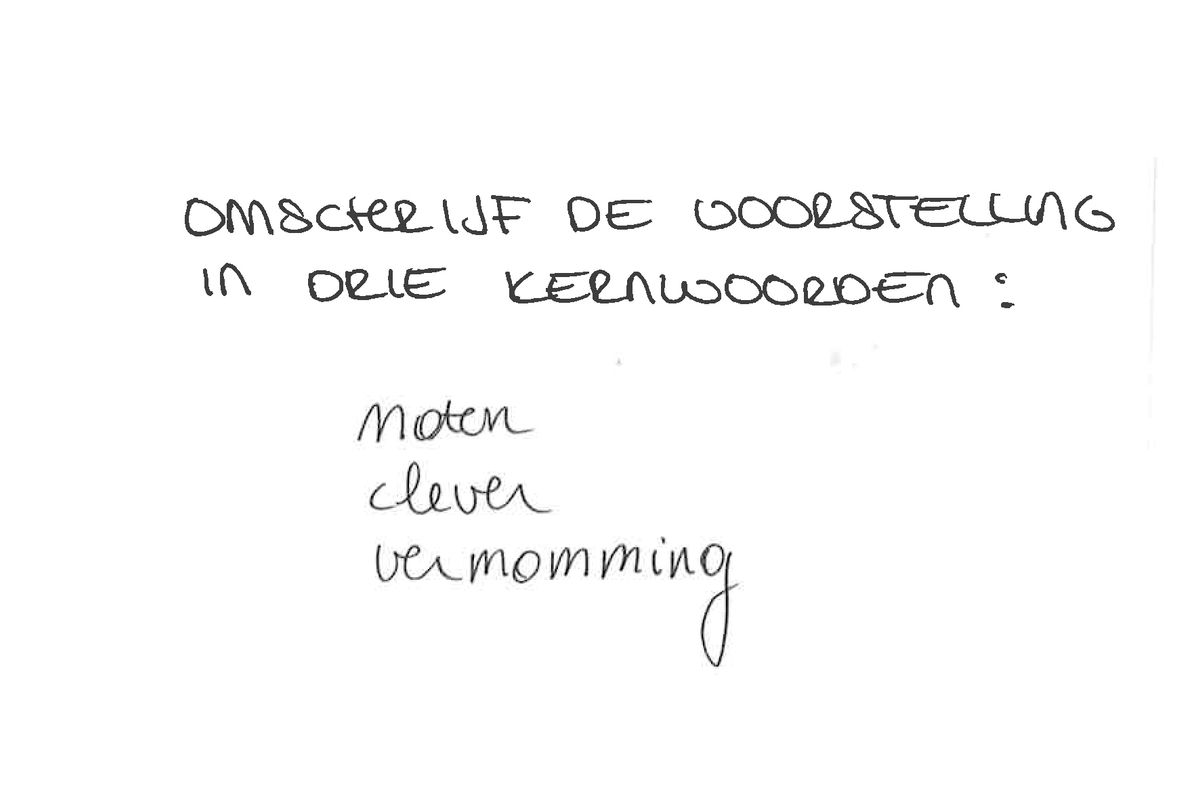 OMSCHRIJF DE VOORSTELLING
IN DRIE KERNWOORDEN:
Noten
clever
vermomming